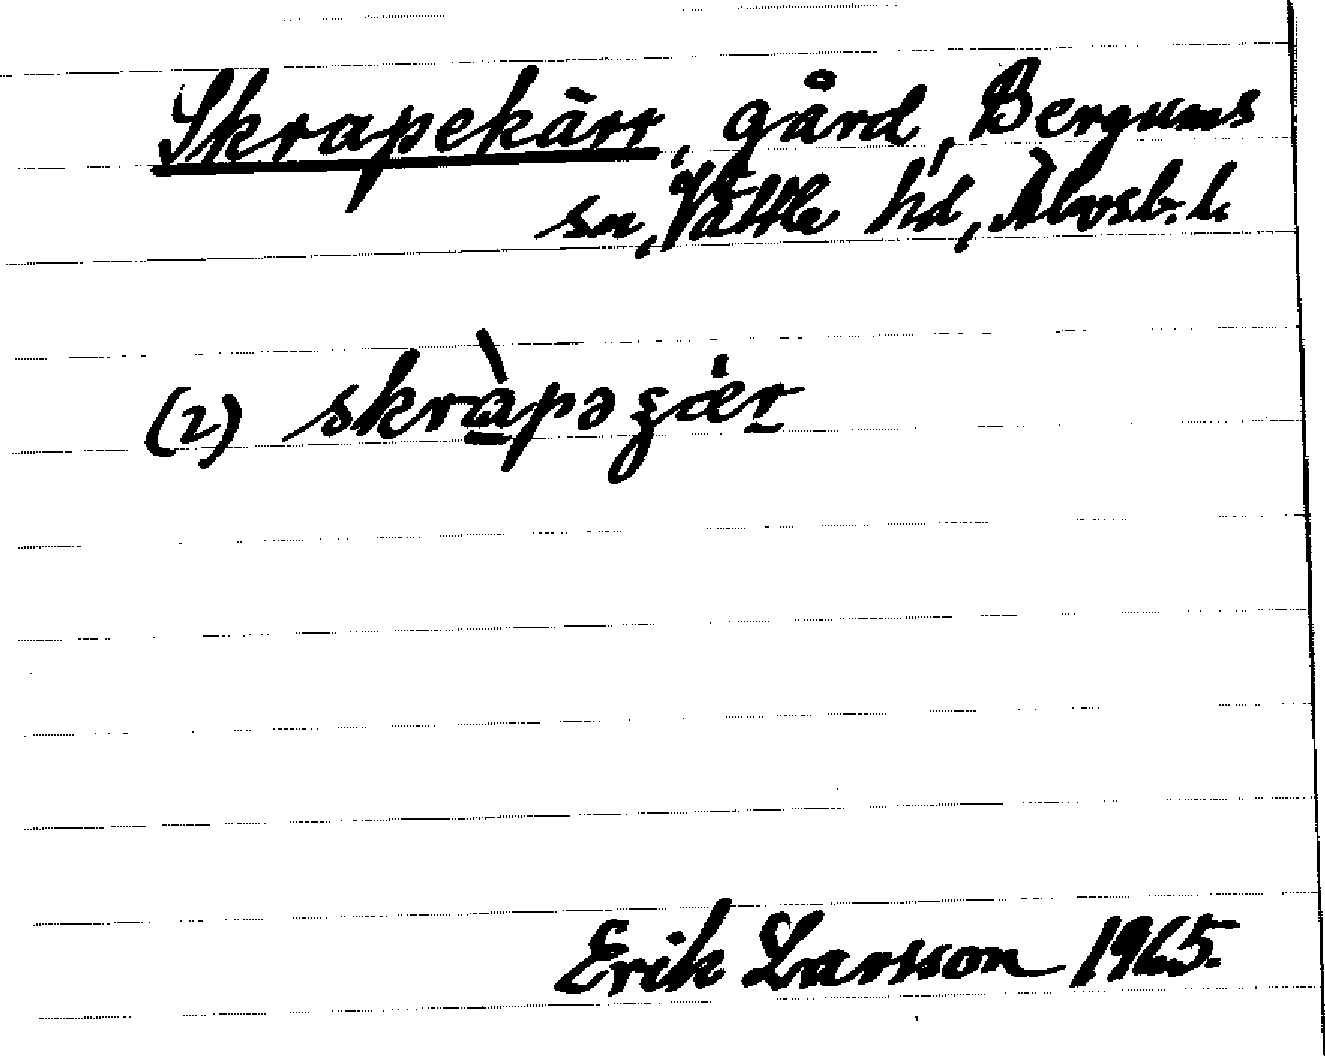 Skrapekärr, gård, Bergums
sn, Vättle hd, Älvsb. l.
(2) skràpəgær
Erik Larsson 1965.